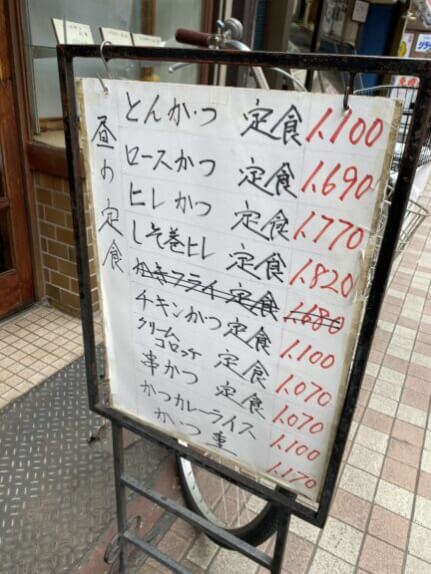 昼の定食
とんかつ 定食 1.100
ロースかつ 定食 1.690
ヒレかつ 定食 1.770
しそ巻ヒレ 定食 1.820
かきフライ定食 1.680
チキンかつ定食 1.100
クリームコロッケ 定食 1.070
串かつ 定食 1.070
かつカレーライス 1.100
かつ重 1.170